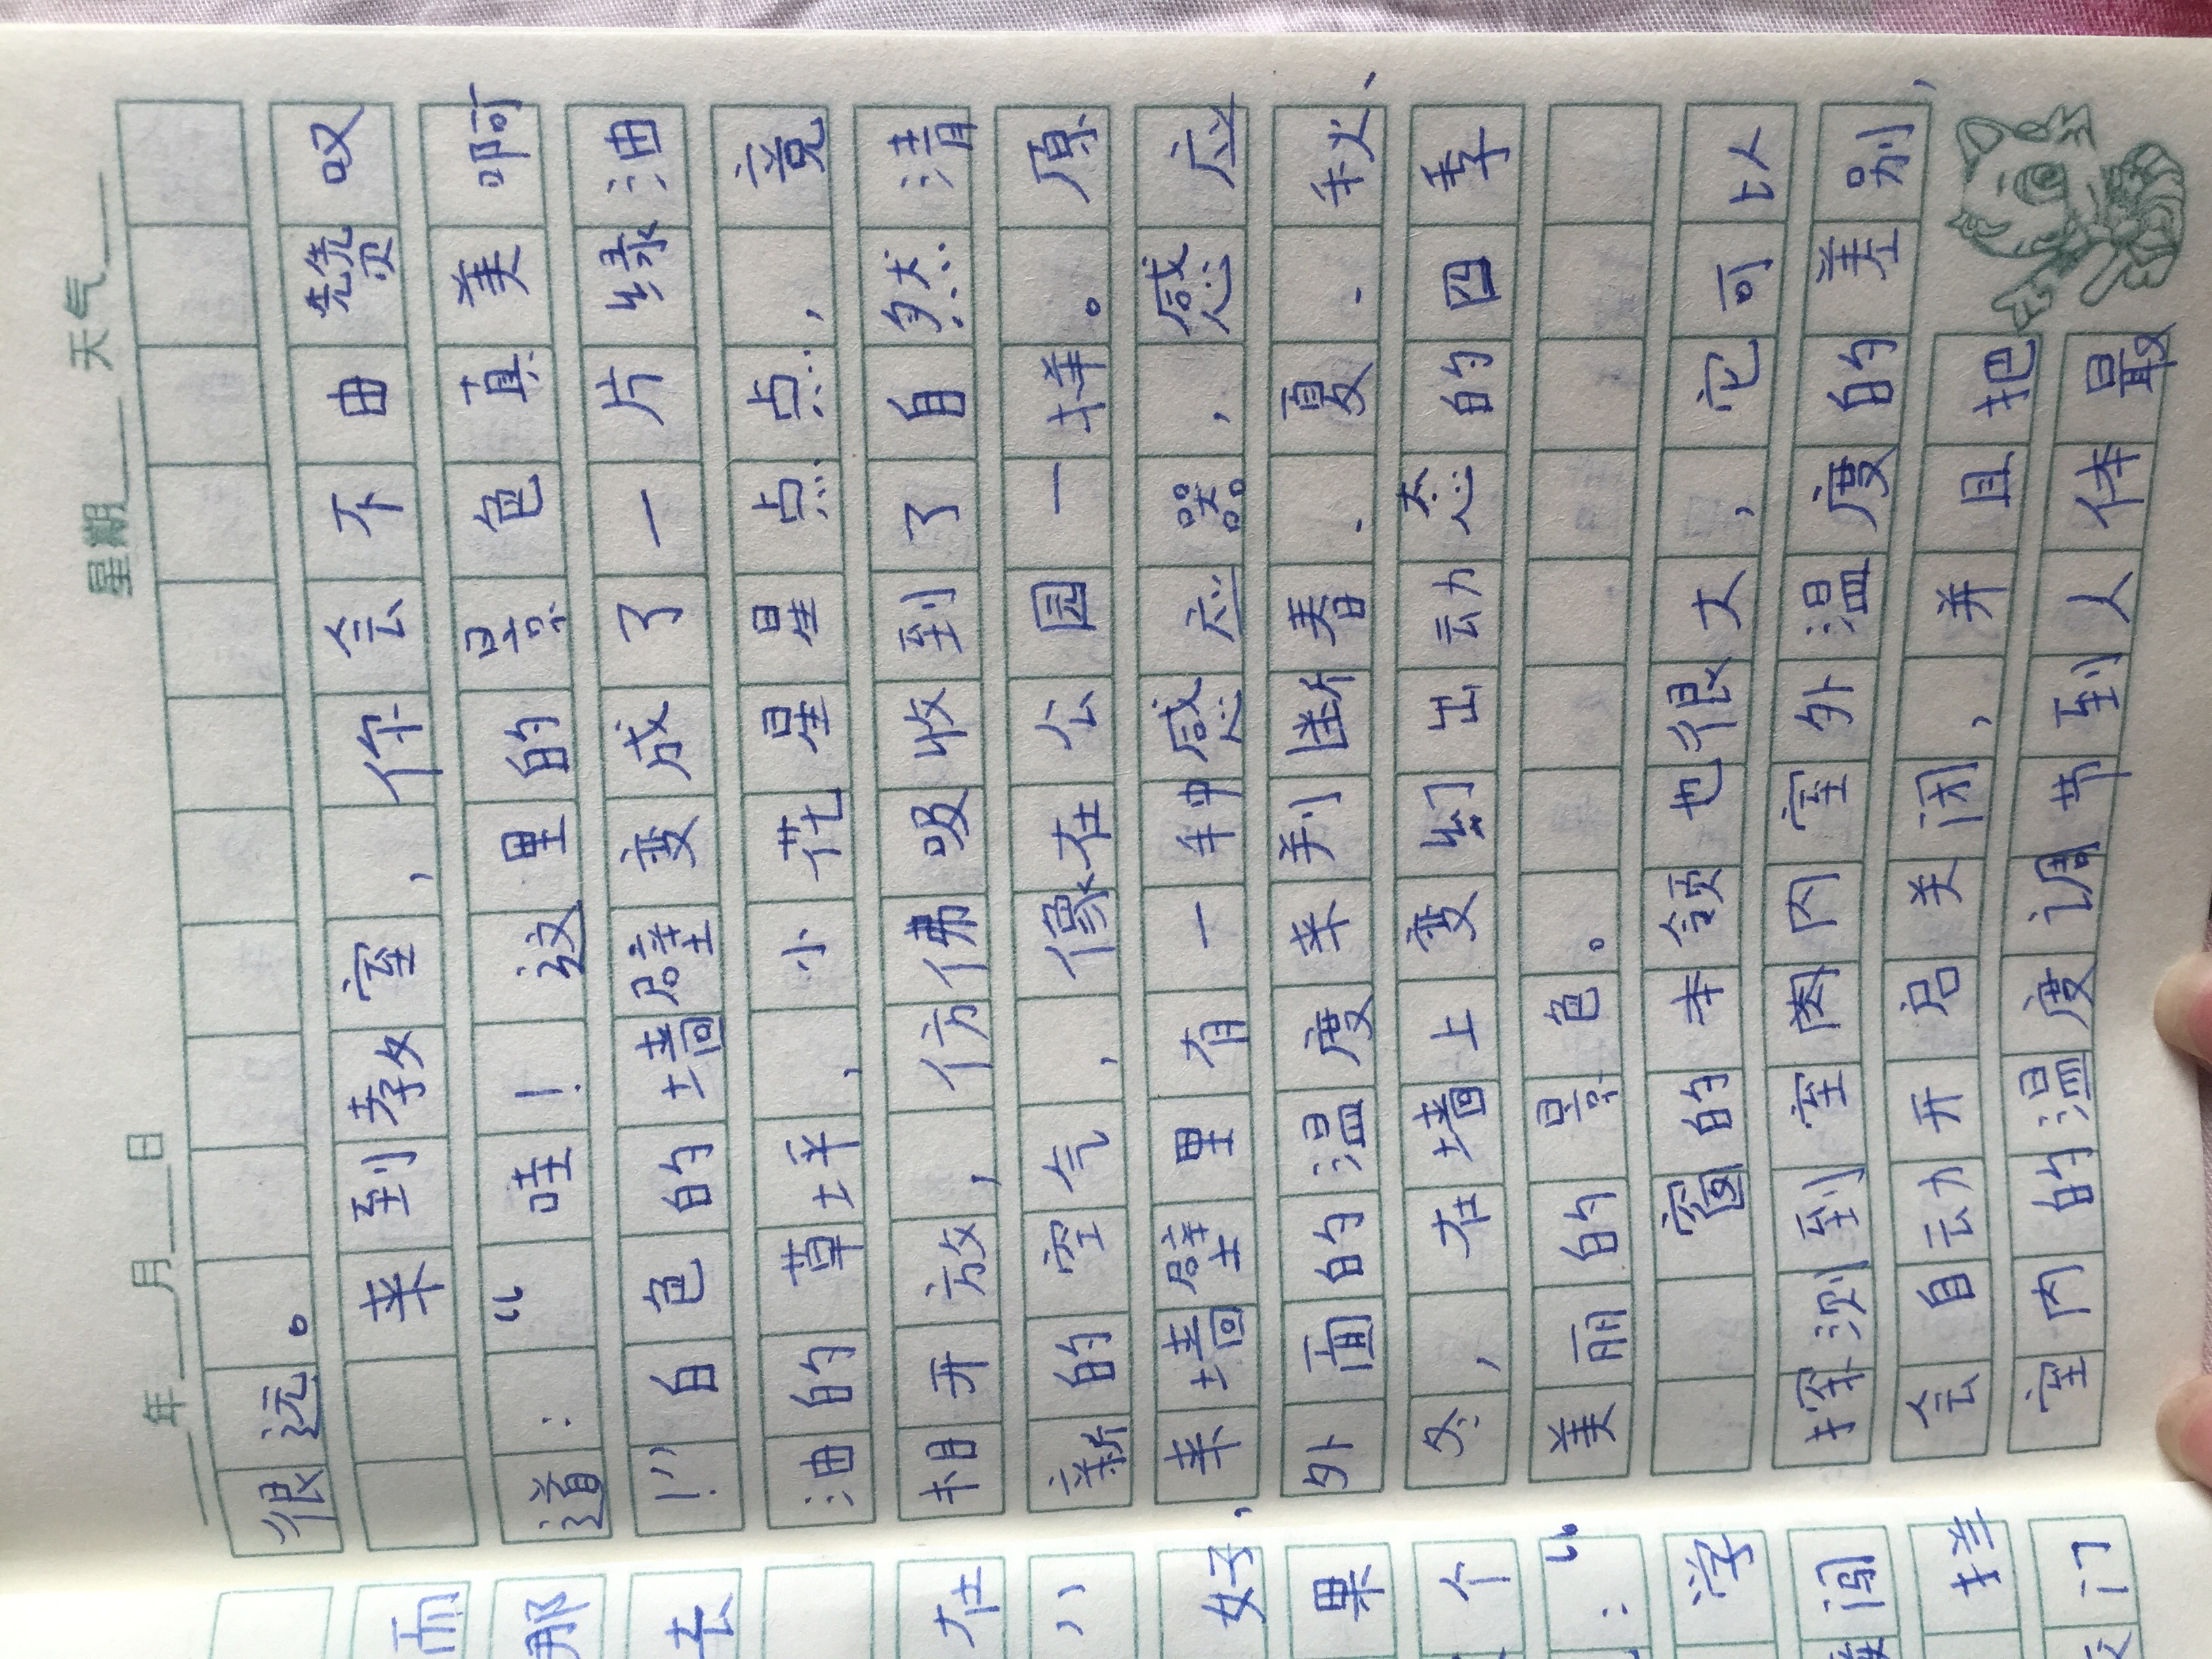 而
那
去
在
好,
果
个
:“
学
拦
门
年 月 日 星期 天气
很远。
来到教室,你会不由赞叹
道:“哇!这里的景色真美啊
!”白色的墙壁变成了一片绿油
油的草坪,小花星星点点,竟
相开放,仿佛吸收到了自然清
新的空气,像在公园一样。原
来墙壁里有一种感应器,感应
外面的温度来判断春、夏、秋、
冬,在墙上变幻出动态的四季
美丽的景色。
窗的本领也很大,它可以
探测到室内室外温度的差别,
会自动开启关闭,并且把
室内的温度调节到人体最